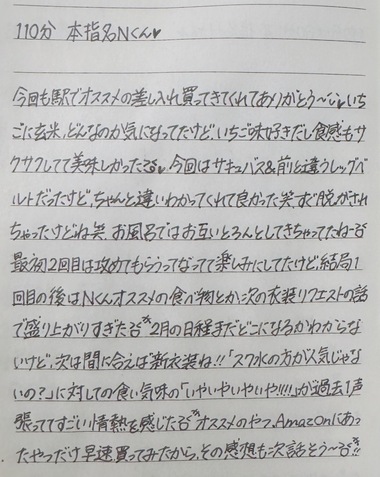 110分 本指名Nくん♥
今回も駅でオススメの差し入れ買ってきてくれてありがとう〜♡いち
ごに玄米、どんなのか気になってたけど、いちご味好きだし食感もサ
クサクしてて美味しかった♥今回はサキュバス&前と違うレッグベ
ルトだったけど、ちゃんと違いわかってくれて良かった笑、すぐ脱がされ
ちゃったけどね笑、お風呂ではお互いとろんとしてきちゃってたね〜
最初2回目は攻めてもらうってなってて楽しみにしてたけど、結局1
回目の後はNくんオススメの食べ物とか次の衣装リクエストの話
で盛り上がりすぎた 2月の日程まだどこになるかわからな
いけど、次は間に合えば新衣装ね!!「スク水の方が人気じゃな
いの?」に対しての食い気味の「いやいやいやいや!!!!」が過去1声
張っててすごい情熱を感じた オススメのやつ、Amazonにあっ
たやつだけ早速買ってみたから、その感想も次話そう〜!!